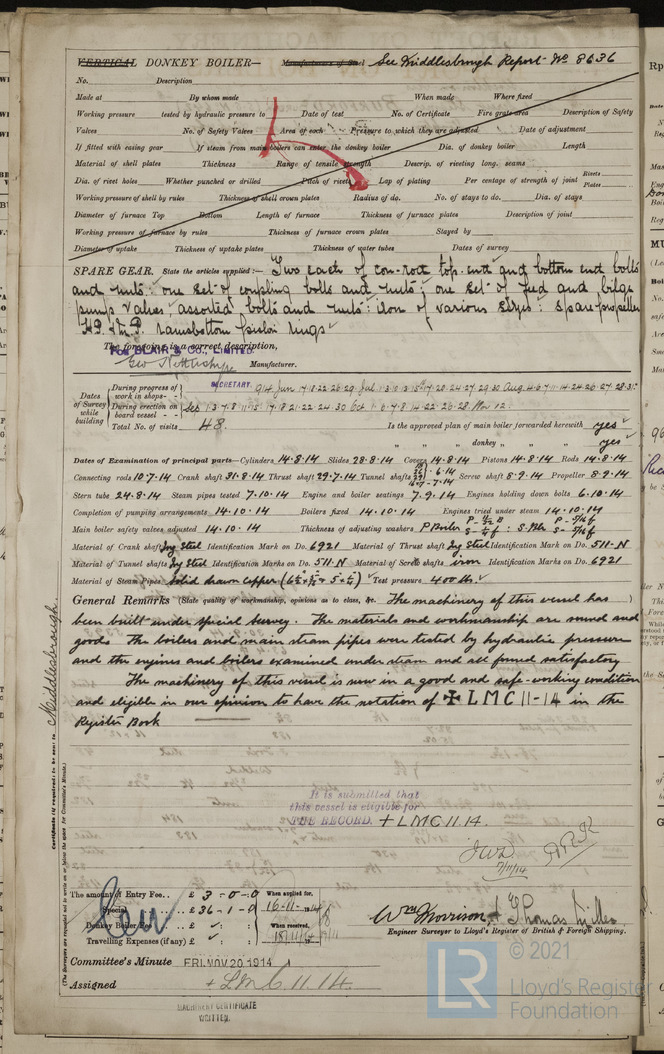 VERTICAL DONKEY BOILER— Manufacturers of Steel See Middlesbrough Report No 8636
No. Description
Made at By whom made When made Where fixed
Working pressure tested by hydraulic pressure to Date of test No. of Certificate Fire grate area Description of Safety
Valves No. of Safety Valves Area of each Pressure to which they are adjusted Date of adjustment
If fitted with casing gear If steam from main boilers can enter the donkey boiler Dia. of donkey boiler Length
Material of shell plates Thickness Range of tensile strength Descrip. of riveting long. seams
Dia. of rivet holes Whether punched or drilled Pitch of rivets Lap of plating Per centage of strength of joint Rivets Plates
Working pressure of shell by rules Thickness of shell crown plates Radius of do. No. of stays to do. Dia. of stays
Diameter of furnace Top Bottom Length of furnace Thickness of furnace plates Description of joint
Working pressure of furnace by rules Thickness of furnace crown plates Stayed by
Diameter of uptake Thickness of uptake plates Thickness of water tubes Dates of survey
SPARE GEAR. State the articles supplied:— Two each of con-rod top end and bottom end bolts
and nuts: one set of coupling bolts and nuts; one set of feed and bilge
pump valves assorted bolts and nuts: iron of various sizes: spare propeller
H.P. & M.P. ramsbottom piston rings
The foregoing is a correct description,
FOR BLAIR & CO., LIMITED.
Manufacturer.
SECRETARY.
Dates of Survey while building
During progress of work in shops - - 1914 Jun 17.18.22.26.29. Jul 1.3.10.13.15.17.23.24.27.29.30 Aug 4.6.7.11.14.24.26.27.28.31
During erection on board vessel - - - Sep 1.3.7.8.11.15.17.18.21.22.24.30 Oct 1.6.7.8.14.22.26.28. Nov 12.
Total No. of visits 48. Is the approved plan of main boiler forwarded herewith yes
" " " donkey " " " yes
Dates of Examination of principal parts—Cylinders 14.8.14 Slides 28.8.14 Covers 14.8.14 Pistons 14.8.14 Rods 14.8.14
Connecting rods 10.7.14 Crank shaft 31.8.14 Thrust shaft 29.7.14 Tunnel shafts Screw shaft 8.9.14 Propeller 8.9.14
Stern tube 24.8.14 Steam pipes tested 7.10.14 Engine and boiler seatings 7.9.14 Engines holding down bolts 6.10.14
Completion of pumping arrangements 14.10.14 Boilers fixed 14.10.14 Engines tried under steam 14.10.14
Main boiler safety valves adjusted 14.10.14 Thickness of adjusting washers
Material of Crank shaft Ing Steel Identification Mark on Do. 6921 Material of Thrust shaft Ing Steel Identification Mark on Do. 511-N
Material of Tunnel shafts Ing Steel Identification Marks on Do. 511-N Material of Screw shafts iron Identification Marks on Do. 6921
Material of Steam Pipes Solid drawn copper Test pressure 400 lbs.
General Remarks (State quality of workmanship, opinions as to class, &c. The machinery of this vessel has
been built under special survey. The materials and workmanship are sound and
good. The boilers and main steam pipes were tested by hydraulic pressure
and the engines and boilers examined under steam and all found satisfactory
The machinery of this vessel is now in a good and safe working condition
and eligible in our opinion to have the notation of + LMC 11-14 in the
Register Book
It is submitted that
this vessel is eligible for
THE RECORD. + LMC 11.14.
The amount of Entry Fee.. £ 3 - 0 - 0 When applied for,
Special £ 36 - 1 - 0 16-11-14
Donkey Boiler Fee £ : : When received,
Travelling Expenses (if any) £ : :
Wm Morrison & Thomas
Engineer Surveyor to Lloyd's Register of British & Foreign Shipping.
Committee's Minute FRI. NOV 20 1914
Assigned + LMC 11.14.
MACHINERY CERTIFICATE
WRITTEN.
Certificate (if required) to be sent to Middlesbrough.
(The Surveyors are requested not to write on or below the space for Committee's Minute.)
© 2021
LR
Lloyd's Register
Foundation